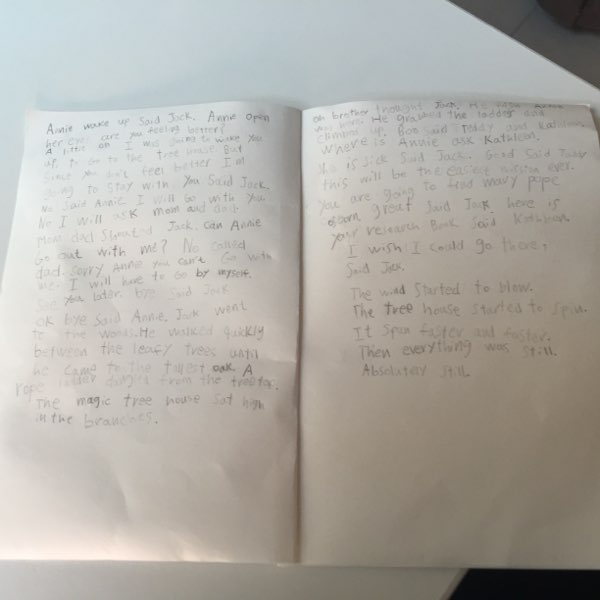 Annie wake up Said Jack. Annie open
her eye. are you feeling better?
A little oh I was going to wake you
up. to Go to the tree house But
Since you don't feel better I'm
going to Stay with You Said Jack.
No Said Annie I will Go with You
No I will ask mom and dad.
Mom dad Shouted Jack. Can Annie
Go out with me? No called
dad. sorry Annie you can't Go with
me. I will have to Go by myself.
See you later. bye Said Jack
OK bye Said Annie. Jack went
to the woods. He walked quickly
between the leafy trees until
he came to the tallest oak. A
rope ladder dangled from the treetop.
The magic tree house Sat high
in the branches.
oh brother thought Jack. He
He grabbed the ladder and
up. Boo Said Teddy and Kathleen
where is Annie ask Kathleen.
She is Sick Said Jack. Good Said Teddy
this will be the easiest mission ever.
You are going to find mary pope
osborn, great Said Jack here is
your research Book Said Kathleen.
I wish I could go there,
Said Jack.
The wind Started to blow.
The tree house Started to Spin.
It Span faster and faster.
Then everything was Still.
Absolutely Still.